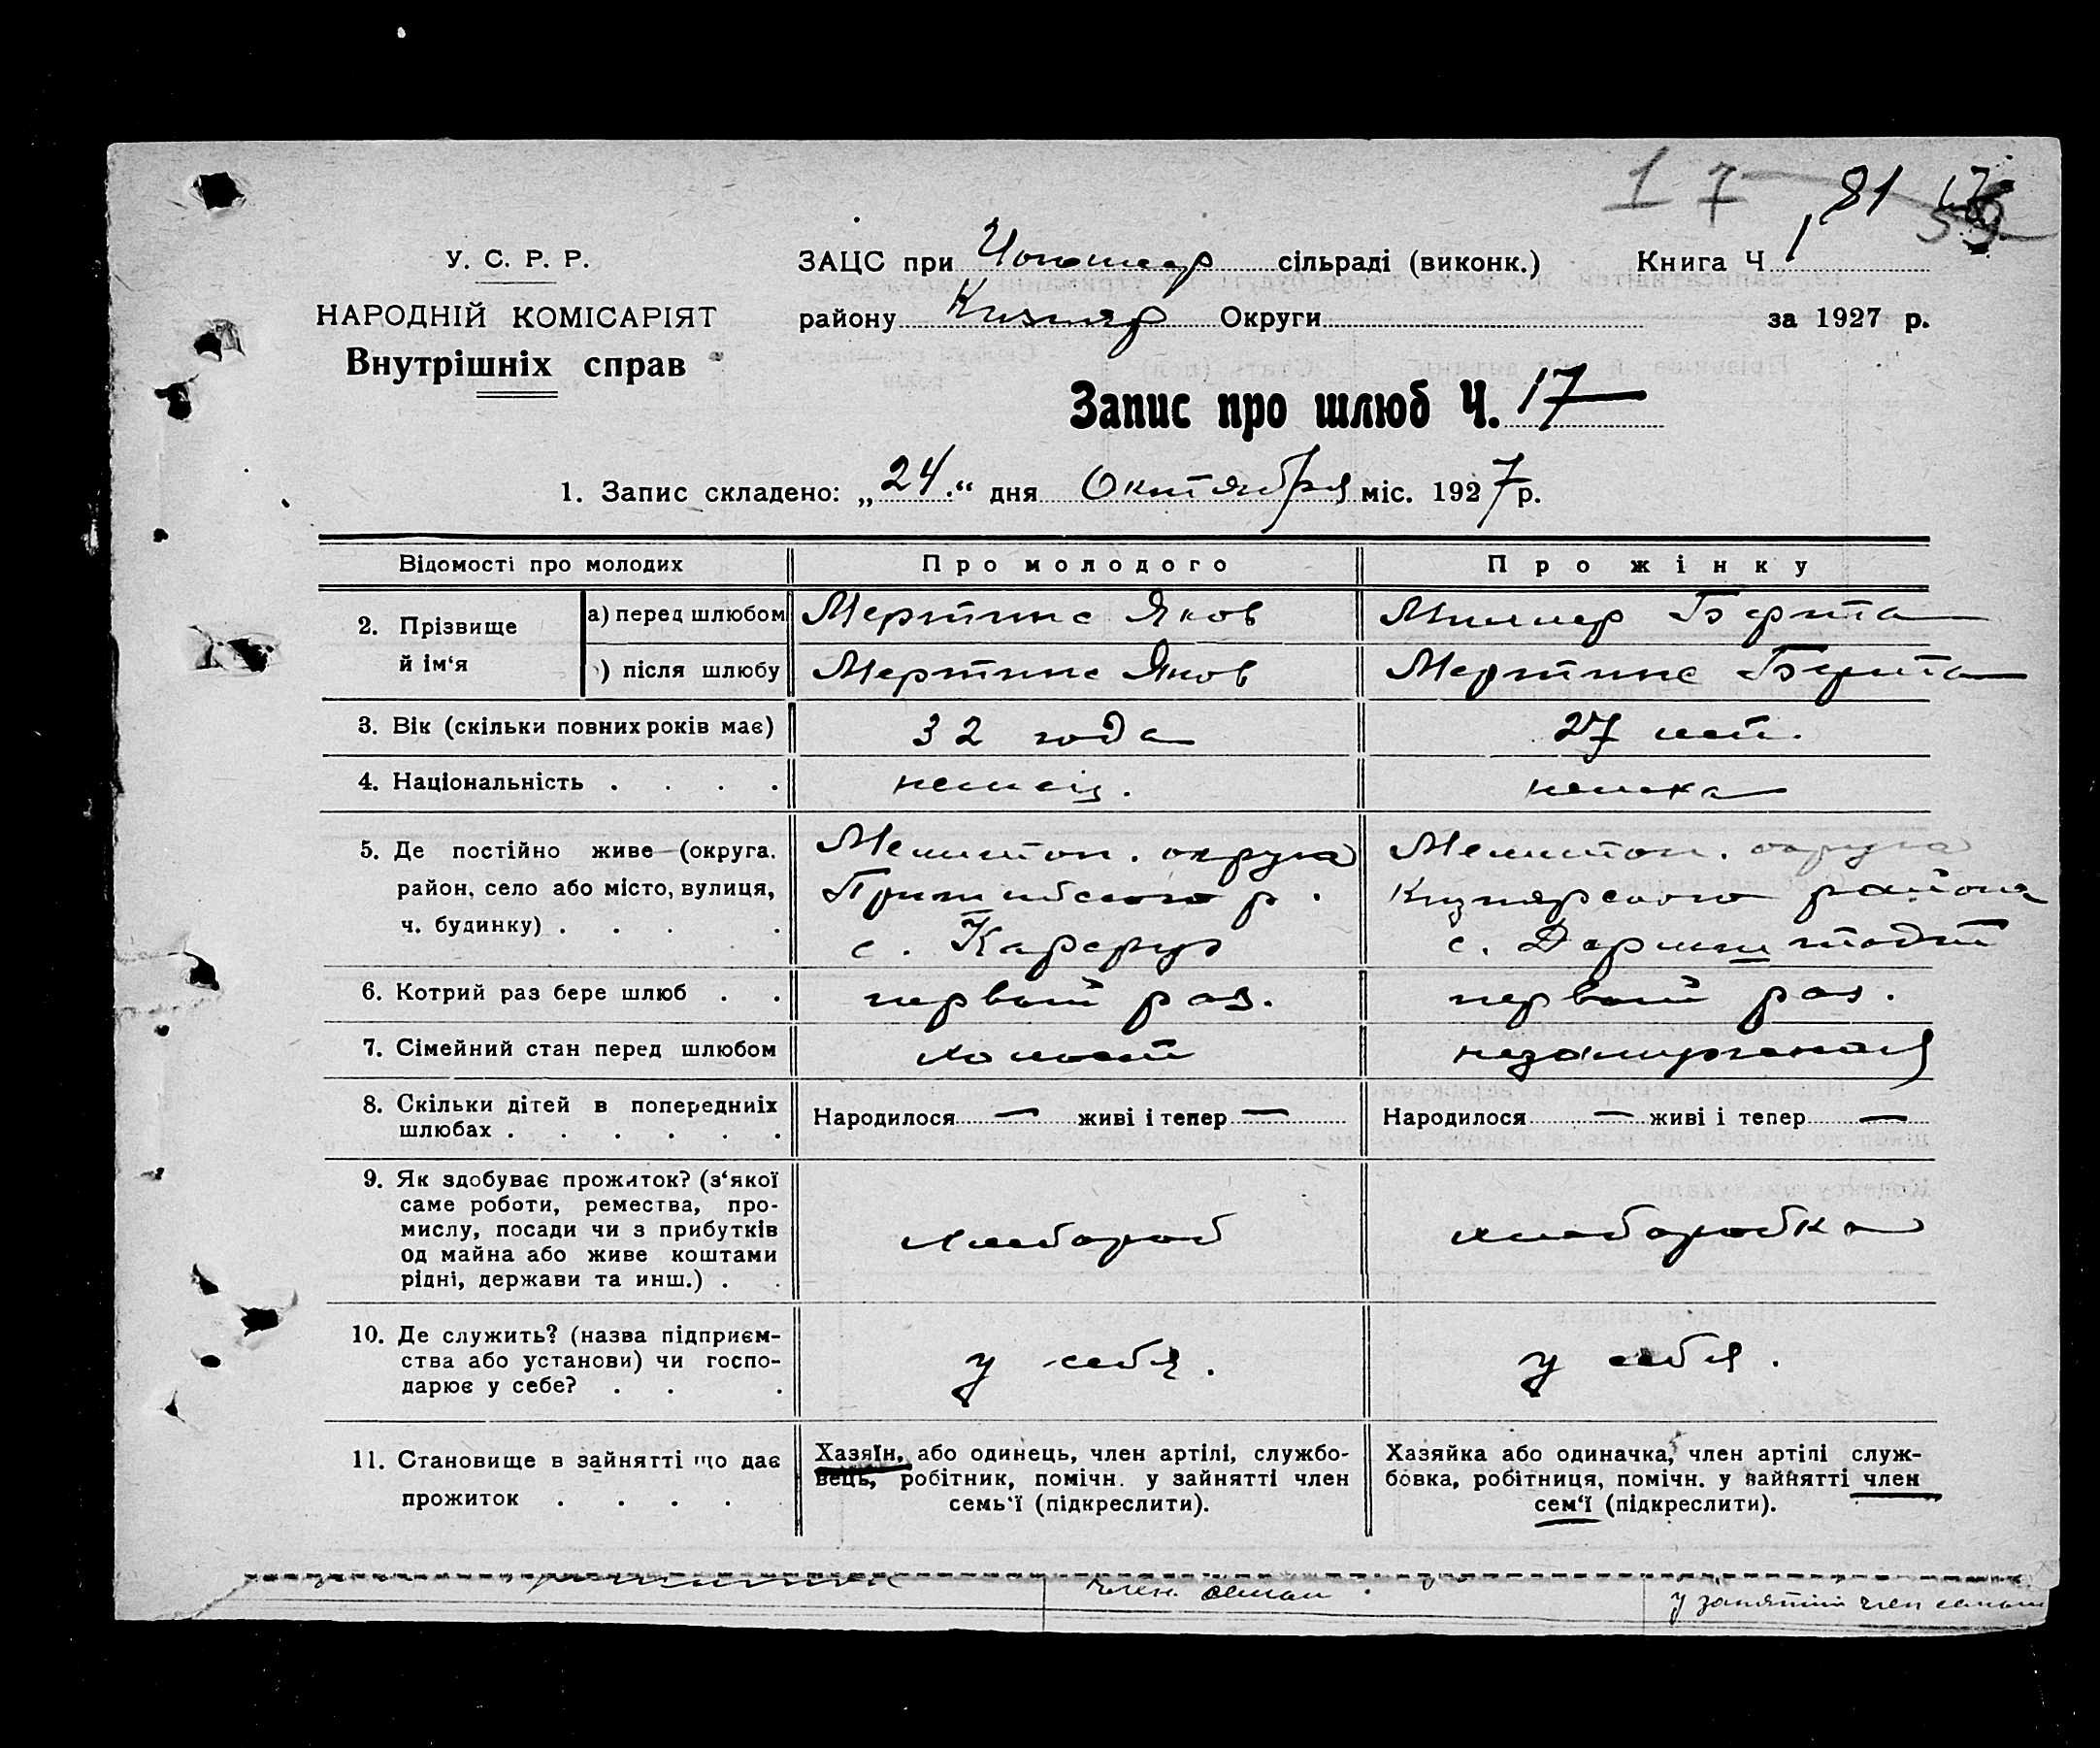 17 81
У. С. Р. Р.
НАРОДНІЙ КОМІСАРІЯТ
Внутрішніх справ
ЗАЦС при сільраді (виконк.) Книга Ч 1
району Кизияр Округи за 1927 р.
Запис про шлюб Ч. 17
1. Запис складено: „24.“ дня Октября міс. 1927 р.
Відомості про молодих Про молодого Про жінку
2. Прізвище й ім‘я
а) перед шлюбом Мертинс Яков Миллер Берта
) після шлюбу Мертинс Яков Мертинс Берта
3. Вік (скільки повних років має) 32 года 27 лет.
4. Національність . . . . немец. немка
5. Де постійно живе (округа, район, село або місто, вулиця, ч. будинку) . . . .
Мелитоп. округа
Пришибского р.
с. Карсруэ
Мелитоп. округа
Кизиярского района
с. Дармштадт
6. Котрий раз бере шлюб . . первый раз. первый раз.
7. Сімейний стан перед шлюбом холост незамужняя
8. Скільки дітей в попередниіх
шлюбах . . . . . .
Народилося — живі і тепер — Народилося — живі і тепер —
9. Як здобуває прожиток? (з‘якої
саме роботи, ремества, про-
мислу, посади чи з прибутків
од майна або живе коштами
рідні, держави та инш.) . .
хлебороб хлеборобка
10. Де служить? (назва підприєм-
ства або установи) чи госпо-
дарює у себе? . . .
у себя. у себя.
11. Становище в зайнятті що дає
прожиток . . . .
Хазяїн, або одинець, член артілі, службо-
вець, робітник, помічн. у зайнятті член
семь‘ї (підкреслити).
Хазяйка або одиначка, член артілі служ-
бовка, робітниця, помічн. у зайнятті член
сем‘ї (підкреслити).
член семьи
у занятии член семьи